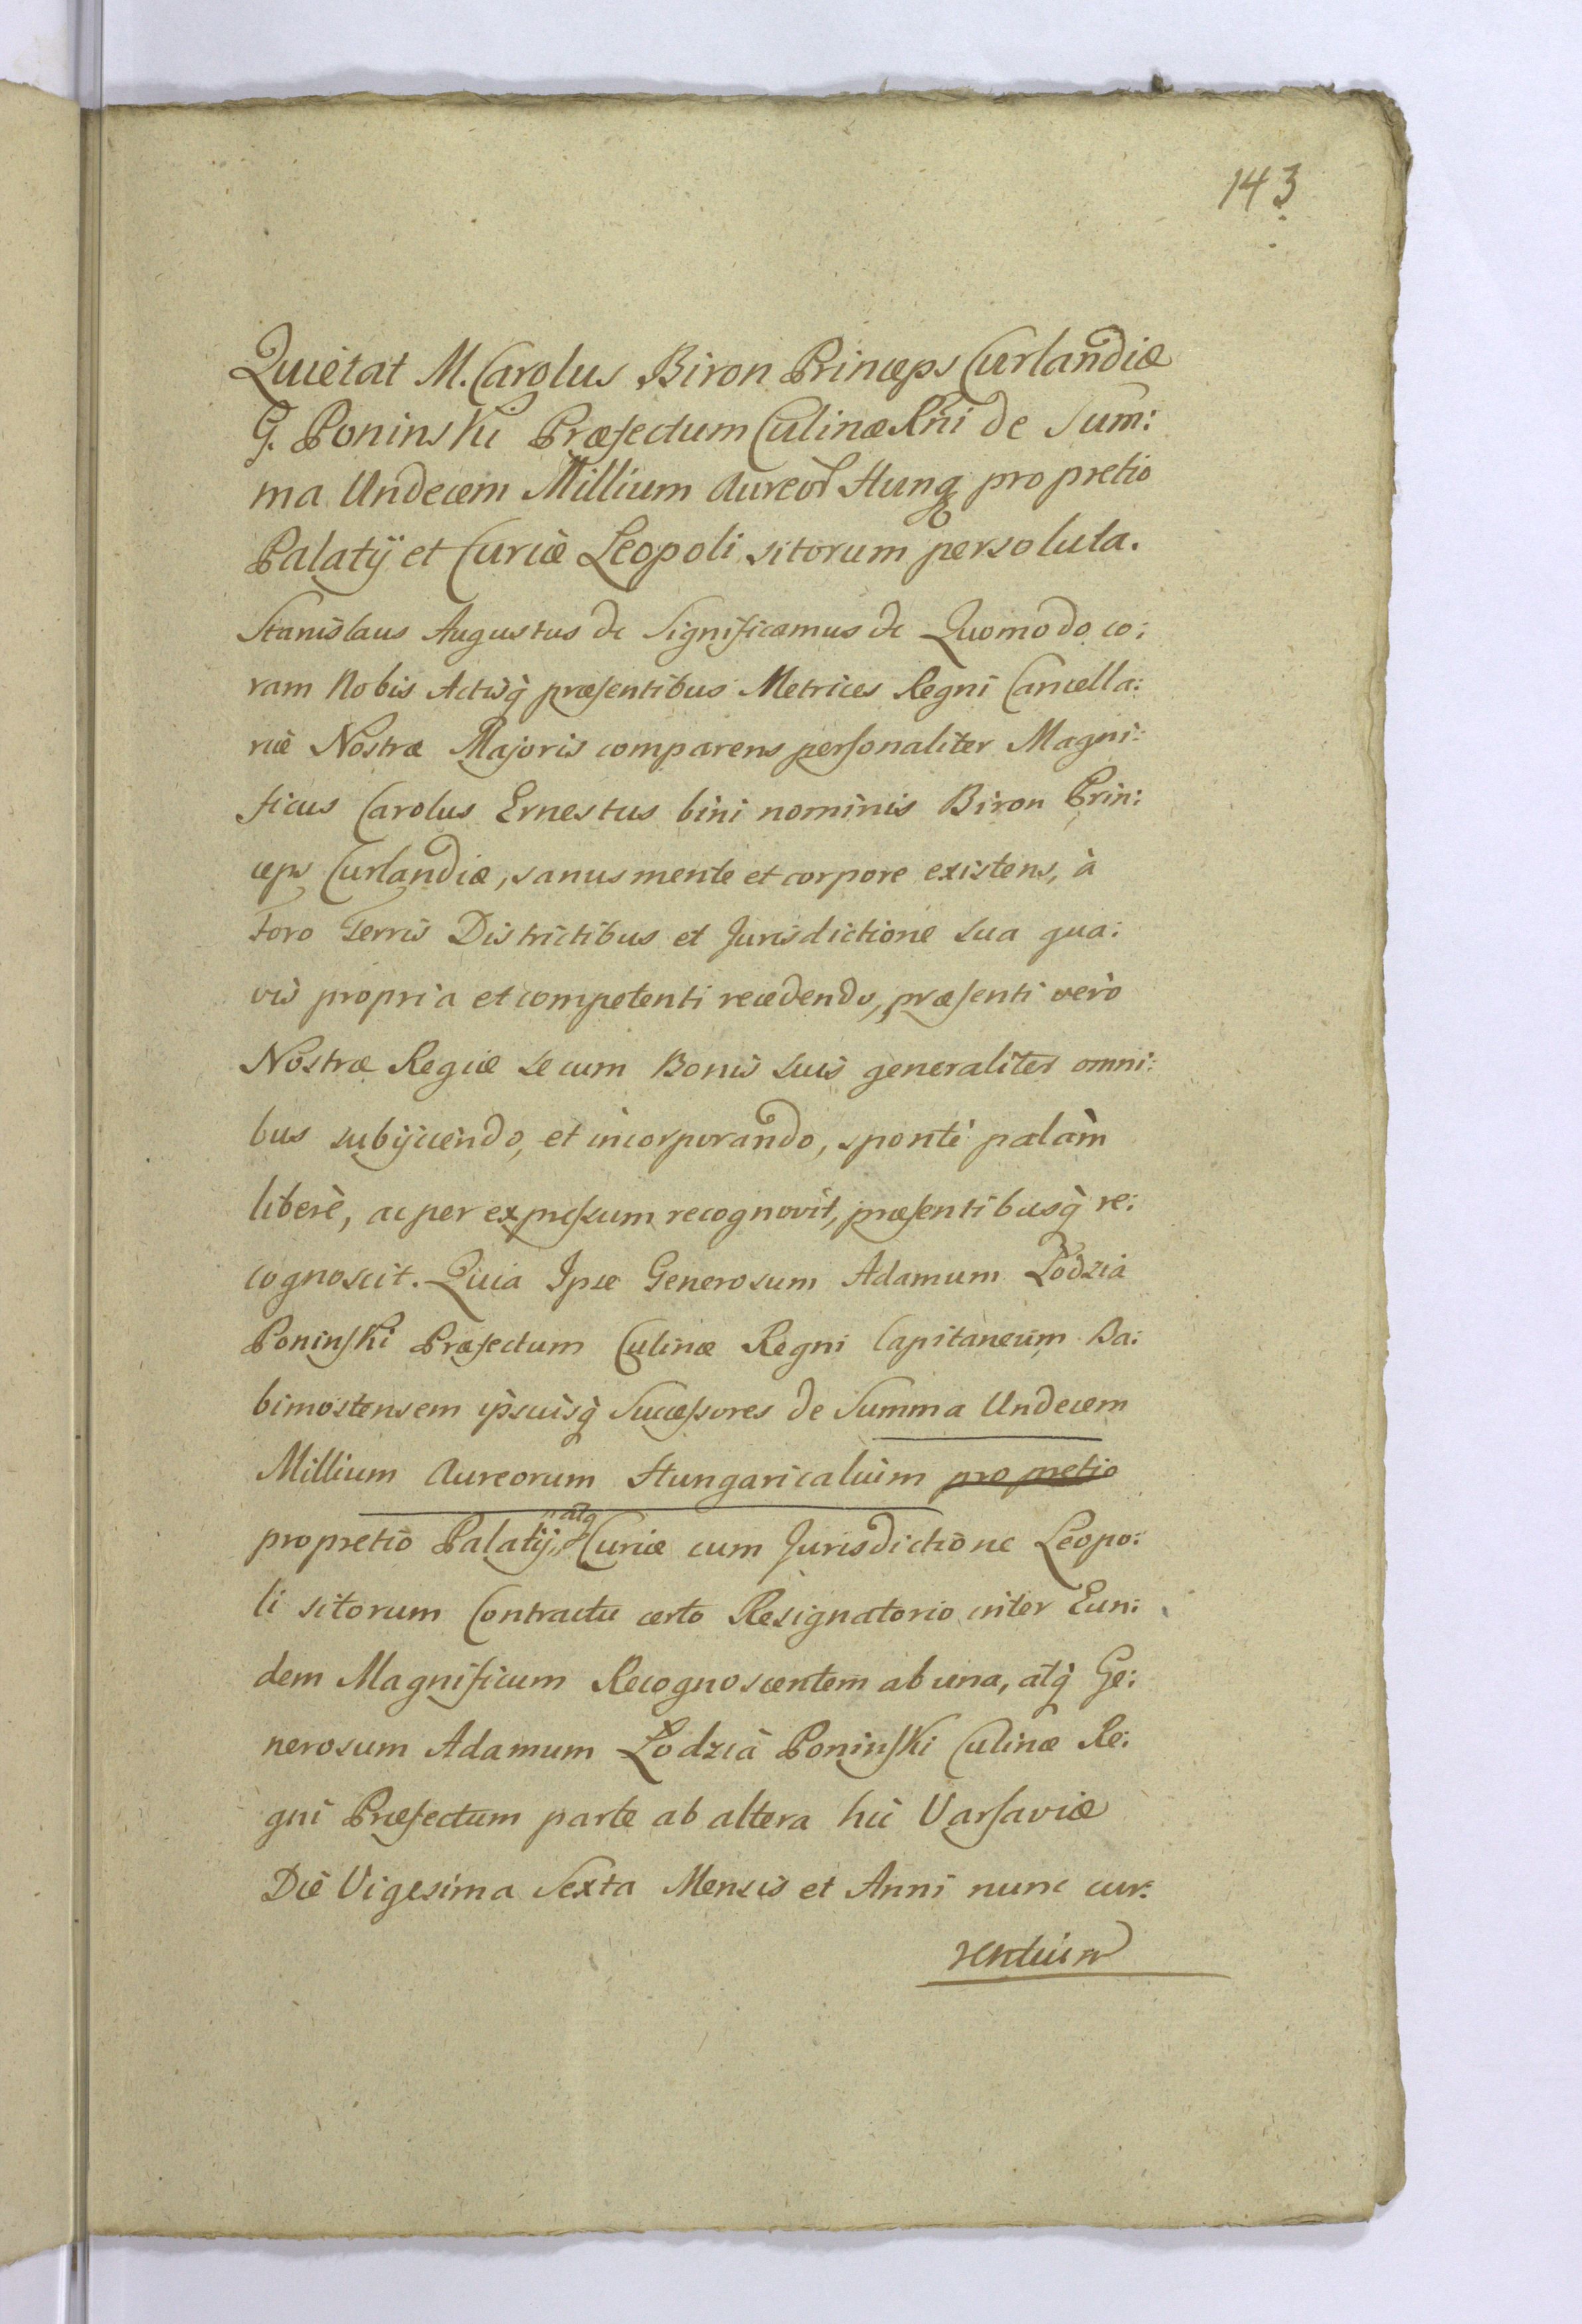 143
Quietat M. Carolus Biron Princeps Curlandiæ
G. Poninski Præfectum Culinæ Rni de Sum:
ma Undecem Millium Aureor Hung pro pretio
Palatij et Curiæ Leopoli sitorum persoluta.
Stanislaus Augustus &c Significamus &c Quomodo co:
ram Nobis Actisq̀ præsentibus Metrices Regni Cancella:
riæ Nostræ Majoris comparens personaliter Magni:
ficus Carolus Ernestus bini nominis Biron Prin:
ceps Curlandiæ, sanus mente et corpore existens, à
Foro Terris Districtibus et Jurisdictione sua qua:
vis propria et competenti recedendo, præsenti verò
Nostræ Regiæ se cum Bonis suis generaliter omni:
bus subijciendo, et incorporando, spontè palàm
liberè, ac per expressum recognovit, præsentibusq̀ re:
cognoscit. Quia Ipse Generosum Adamum Łodzia
Poninski Præfectum Culinæ Regni Capitaneum Ba:
bimostensem ipsiusq̀ Successores de Summa Undecem
Millium Aureorum Hungaricalium pro pretio
pro pretio Palatij, atq Curiæ cum Jurisdictione Leopo:
li sitorum Contractu certo Resignatorio inter Eun:
dem Magnificum Recognoscentem ab una, atq̀ Ge:
nerosum Adamum Łodzia Poninski Culinæ Re:
gni Præfectum parte ab altera hic Varsaviæ
Die Vigesima Sexta Mensis et Anni nunc cur:
rentium